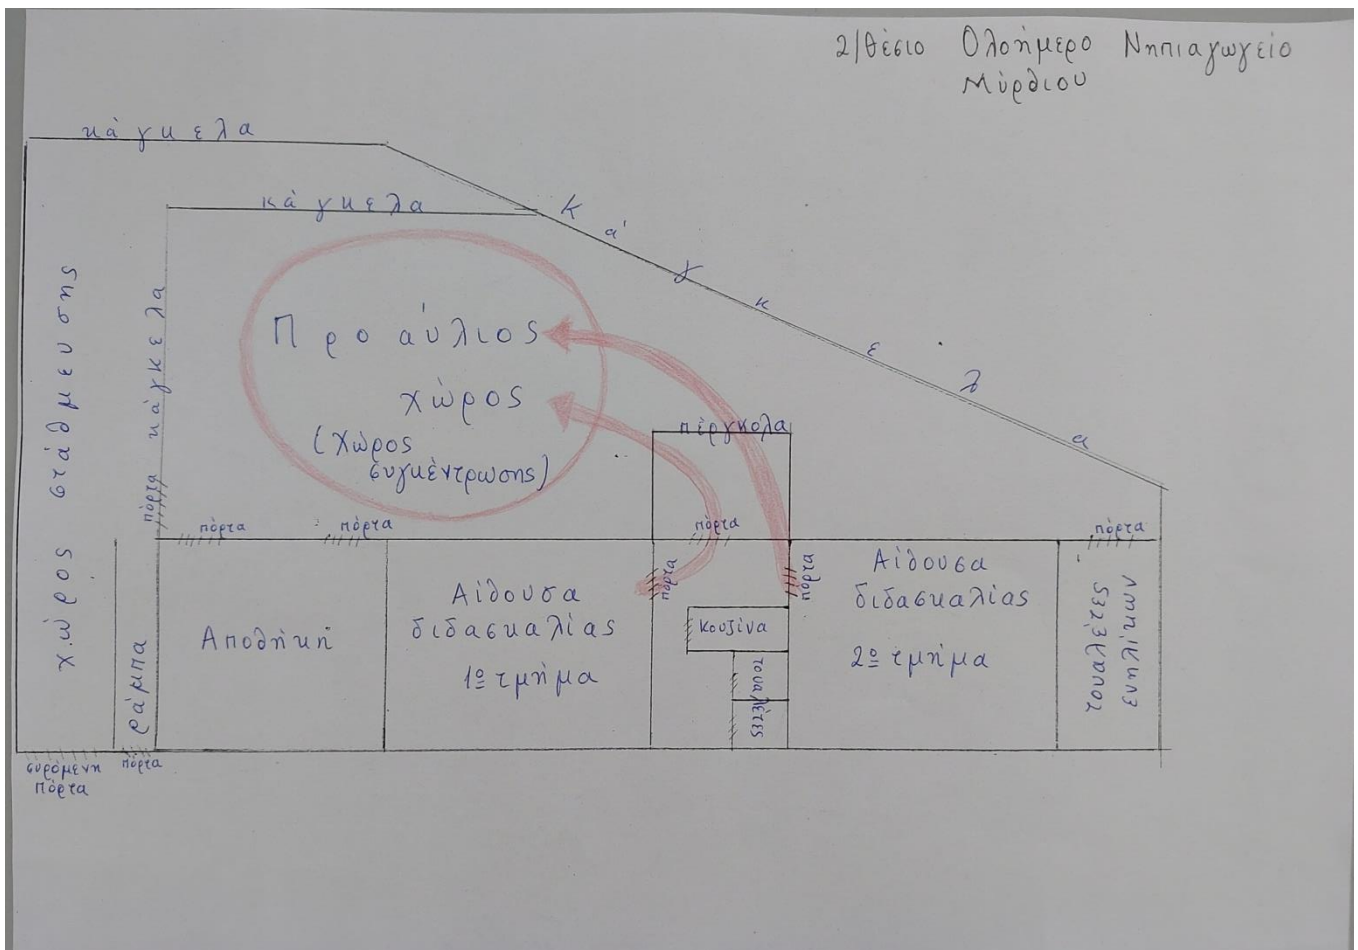 2/θέσιο Ολοήμερο Νηπιαγωγείο
Μύρθιου
κάγκελα
κάγκελα
κάγκελα
χώρος στάθμευσης
πόρτα κάγκελα
Προαύλιος
χώρος
(Χώρος
συγκέντρωσης)
πέργκολα
πόρτα
πόρτα
πόρτα
πόρτα
πόρτα
πόρτα
ράμπα
Αποθήκη
Αίθουσα
διδασκαλίας
1º τμήμα
Κουζίνα
τουαλέτες
Αίθουσα
διδασκαλίας
2º τμήμα
τουαλέτες
ενηλίκων
συρόμενη
πόρτα
πόρτα